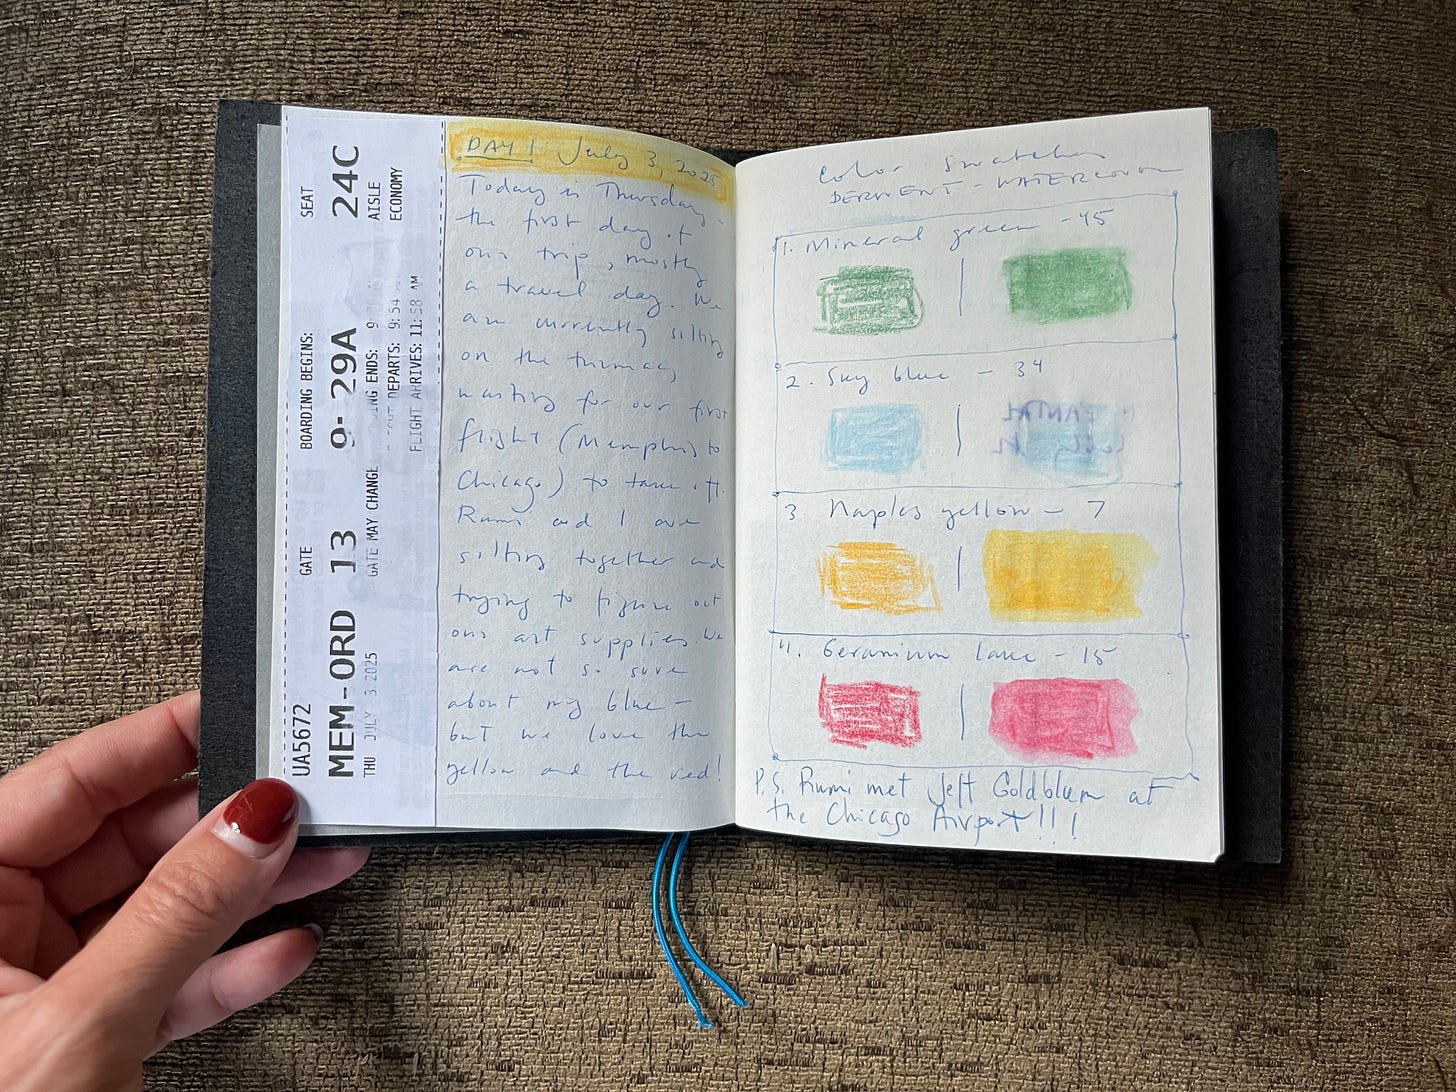 SEAT
24C
AISLE
ECONOMY
BOARDING BEGINS:
9-29A
ING ENDS: 9
DEPARTS: 9:54
FLIGHT ARRIVES: 11:58 AM
GATE
13
GATE MAY CHANGE
UA5672
MEM-ORD
THU JULY 3 2025
DAY 1 July 3, 2025
Today is Thursday -
the first day of
our trip, mostly
a travel day. We
are currently sitting
on the tarmac,
waiting for our first
flight (Memphis to
Chicago) to take off.
Rumi and I are
sitting together and
trying to figure out
our art supplies. We
are not so sure
about my blue -
but we love the
yellow and the red!
Color Swatches
DERWENT - WATERCOLOUR
1. Mineral green - 45
2. Sky blue - 34
3. Naples yellow - 7
4. Geranium Lake - 15
P.S. Rumi met Jeff Goldblum at
the Chicago Airport!!!